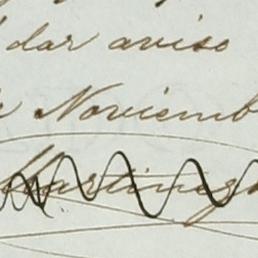 dar aviso
Noviemb
Martinez